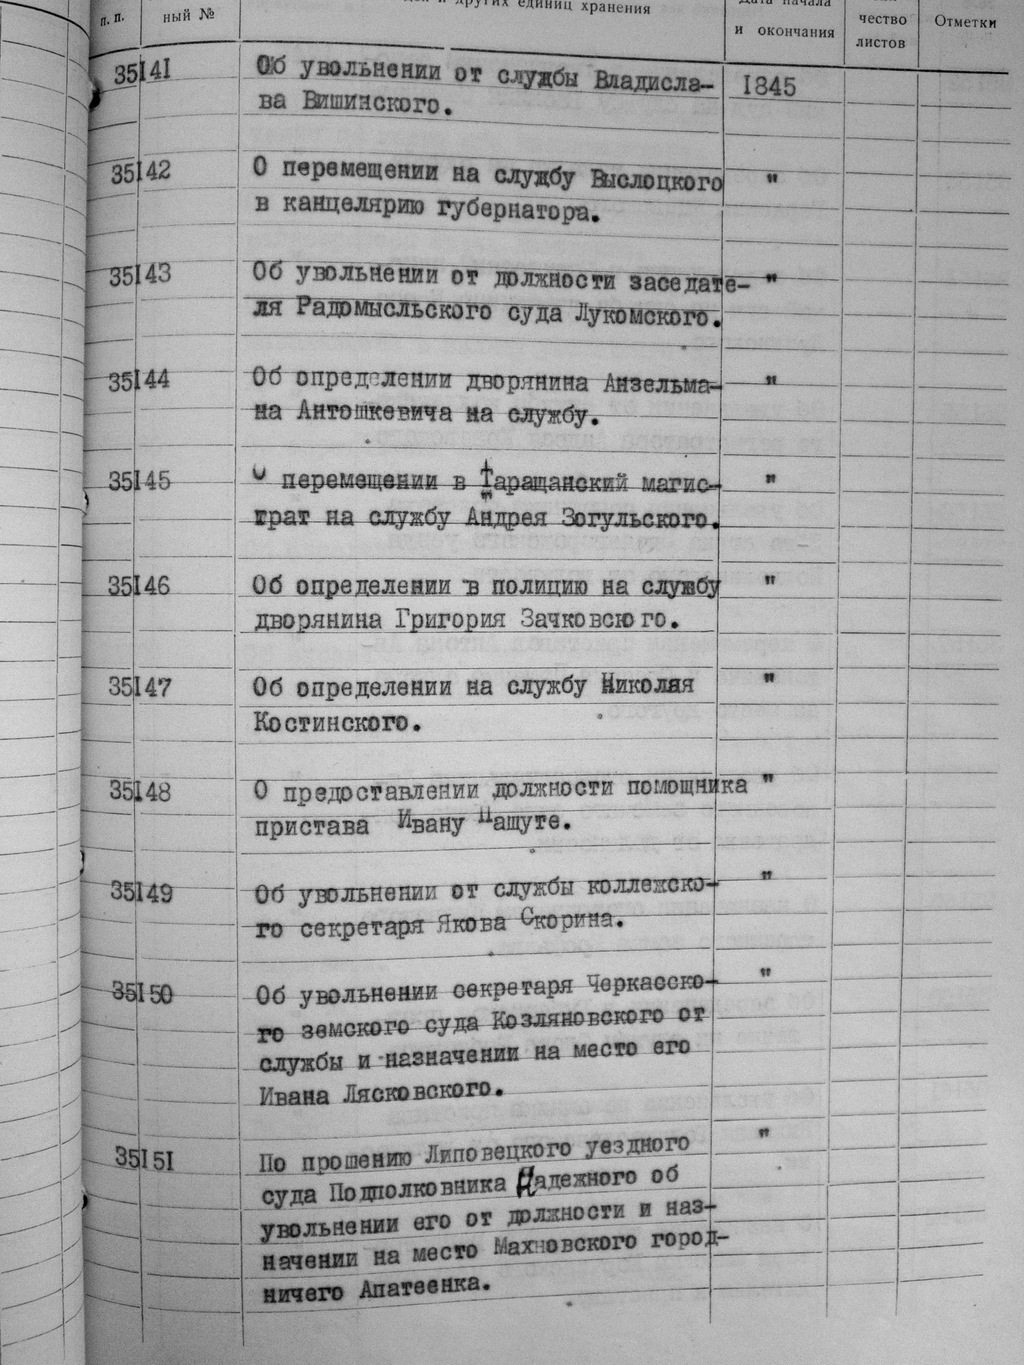 п. п. ный № других единиц хранения Дата начала
и окончания чество
листов Отметки
35I4I Об увольнении от службы Владисла- I845
ва Вишинского.
35I42 О перемещении на службу Выслоцкого "
в канцелярию губернатора.
35I43 Об увольнении от должности заседате- "
ля Радомысльского суда Лукомского.
35I44 Об определении дворянина Анзельма- "
на Антошкевича на службу.
35I45 О перемещении в Таращанский магис- "
трат на службу Андрея Зогульского.
35I46 Об определении в полицию на службу "
дворянина Григория Зачковского.
35I47 Об определении на службу Николая "
Костинского.
35I48 О предоставлении должности помощника "
пристава Ивану Пашуте.
35I49 Об увольнении от службы коллежско- "
го секретаря Якова Скорина.
35I50 Об увольнении секретаря Черкасско- "
го земского суда Козляновского от
службы и назначении на место его
Ивана Лясковского.
35I5I По прошению Липовецкого уездного "
суда Подполковника Надежного об
увольнении его от должности и наз-
начении на место Махновского город-
ничего Апатеенка.